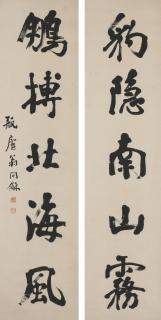 豹隐南山霧
鵬搏北海風
瓶廬翁同龢